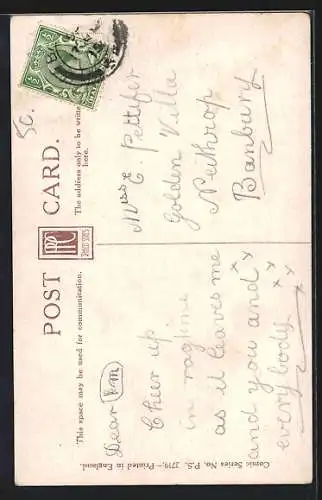 POST CARD.
This space may be used for communication.
The address only to be written here.
Dear
Cheer up.
in ragtime
as it leaves me
and you and x x
everybody x x
Miss E. Pettifer
Golden Villa
Neithrop
Banbury
Comic Series No. P.S. 2719.—Printed in England.